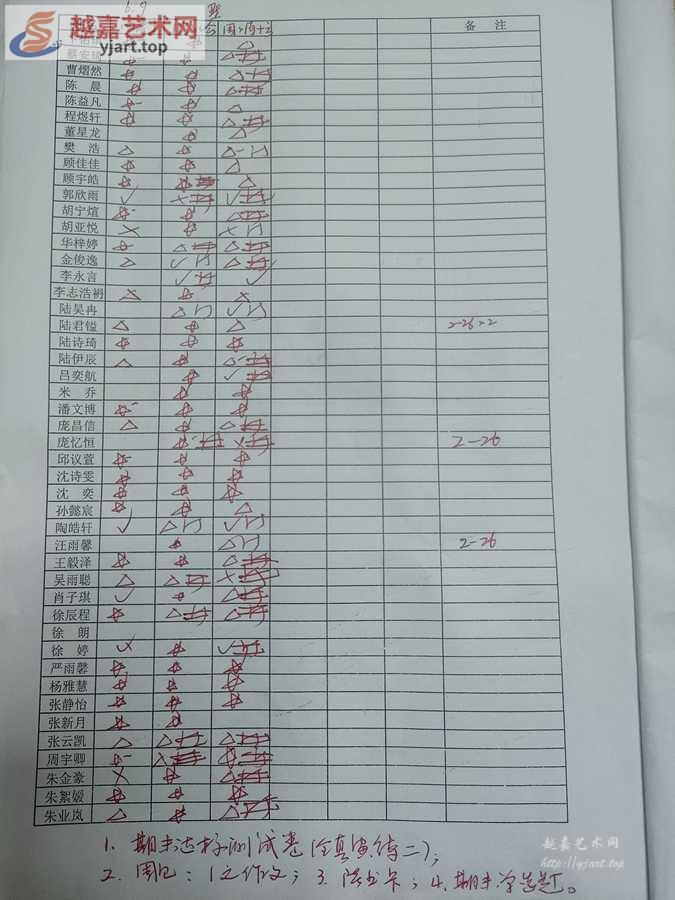 6.9
越嘉艺术网
yjart.top
备 注
蔡安琦
曹熠然
陈 晨
陈益凡
程煜轩
董星龙
樊 浩
顾佳佳
顾宇皓
郭欣雨
胡宁煊
胡亚悦
华梓婷
金俊逸
李永言
李志浩
陆昊冉
陆君镒
陆诗琦
陆伊辰
吕奕航
米 乔
潘文博
庞昌信
庞忆恒 2-26
邱议萱
沈诗雯
沈 奕
孙懿宸
陶皓轩
汪雨馨 2-26
王毅泽
吴雨聪
肖子琪
徐辰程
徐 朗
徐 婷
严雨馨
杨雅慧
张静怡
张新月
张云凯
周宇卿
朱金豪
朱絮媛
朱业岚
1. 期末达标测试卷(全真演练二);
2. 周包:1文作文;3. 阅书卡;4. 期末
越嘉艺术网
http://yjart.top